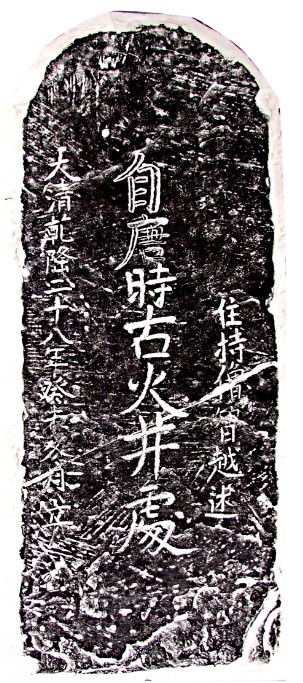 住持僧智越述
自唐時古火井處
大清乾隆二十八年癸未